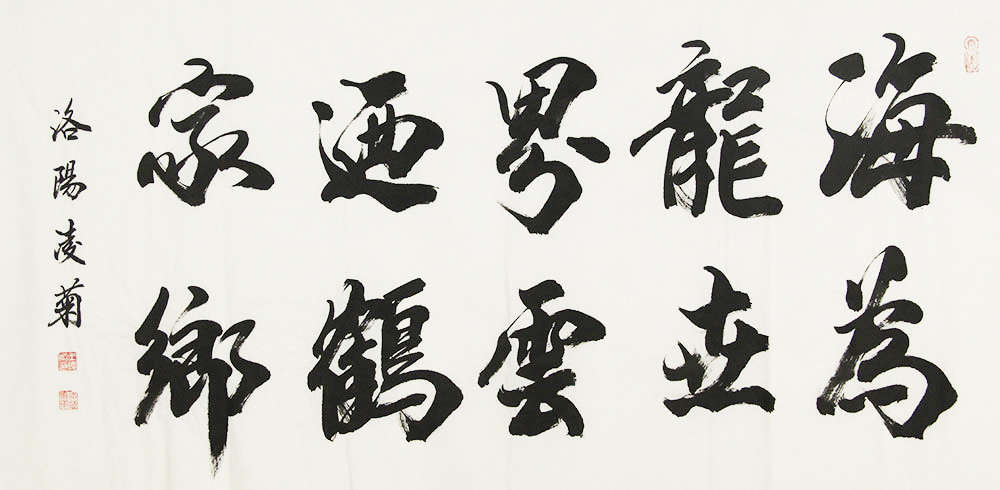 海為
龍世
界雲
迺鶴
家鄉
洛陽凌菊